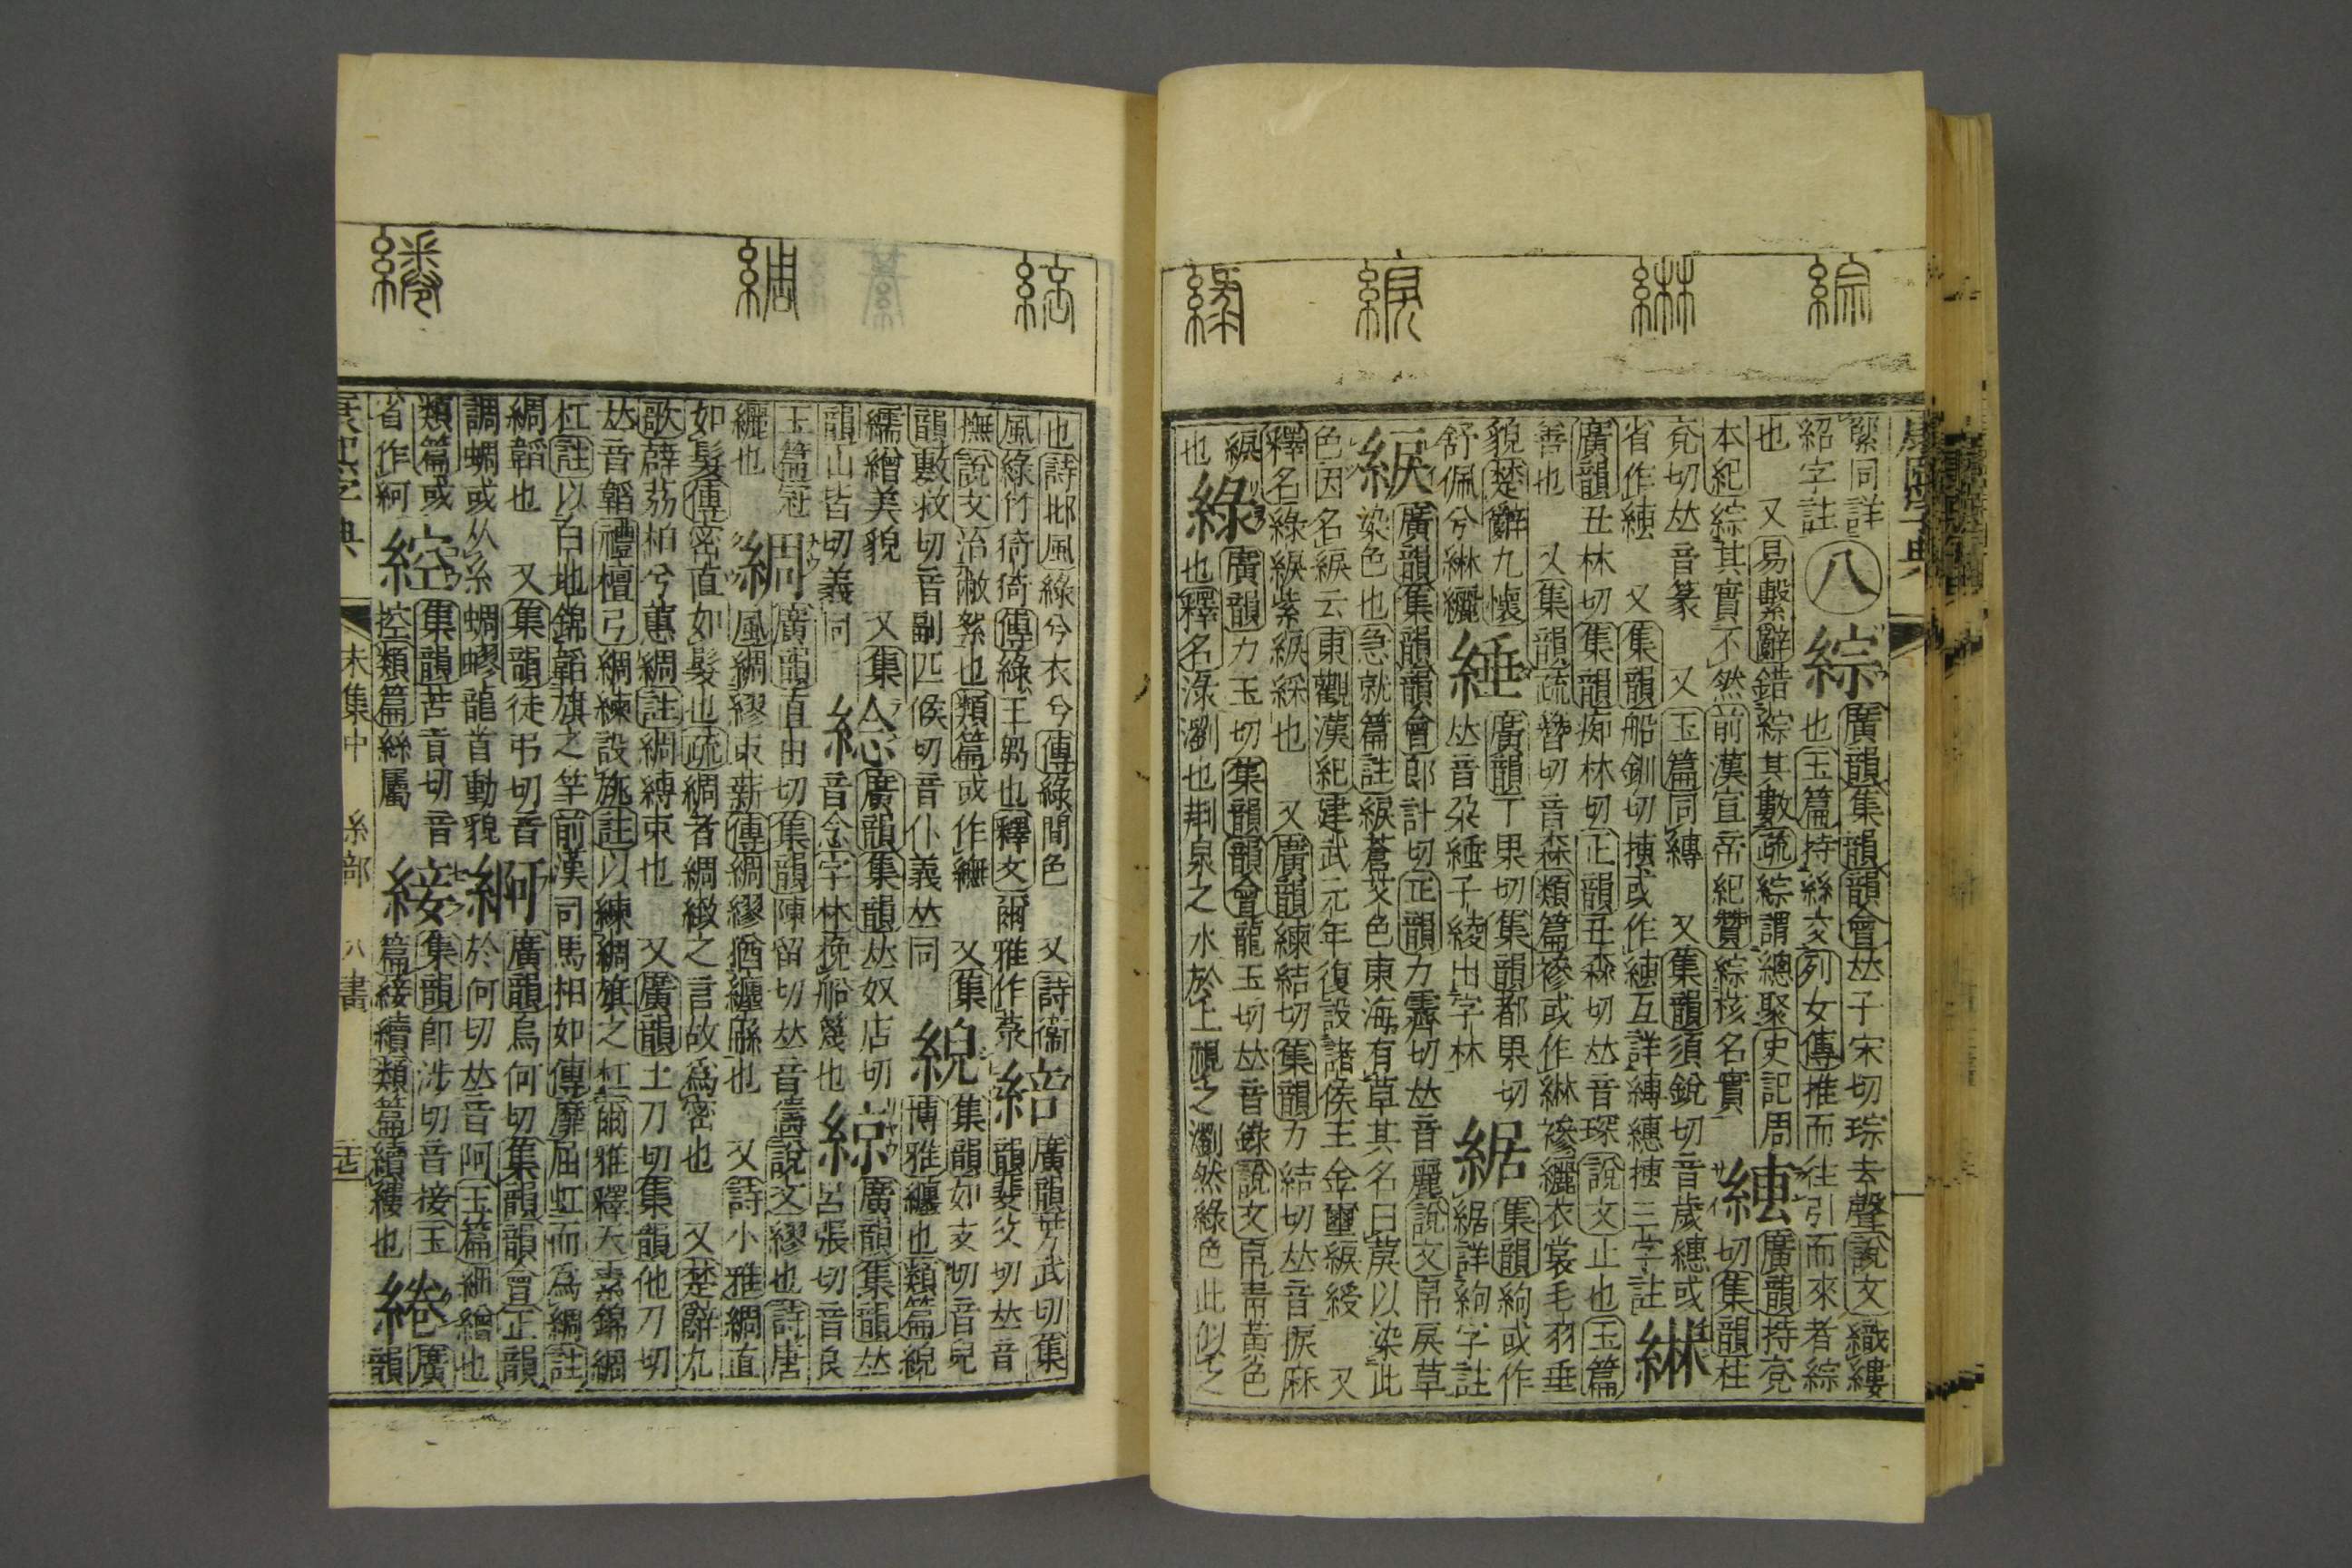 康熙字典
綜
綝
綟
綠
綮同詳
紹字註
八
綜
廣韻集韻韻會𠀤子宋切琮去聲說文織縷
也玉篇持絲交列女傳推而往引而來者綜
也　又易繫辭錯綜其數疏綜謂總聚史記周
本紀綜其實不然前漢宣帝紀贊綜核名實
𦁆
廣韻持兗
切集韻柱
兗切𠀤音篆　又玉篇同縳　又集韻須銳切音歲繐或
省作𦁆　又集韻船釧切或作𦁆互詳縳繐三字註
綝
廣韻丑林切集韻痴林切正韻丑森切𠀤音琛說文止也玉篇
善也　又集韻疏簪切音森類篇襂或作綝襂纚衣裳毛羽垂
貌楚辭九懷
舒佩兮綝纚
綞
廣韻丁果切集韻都果切
𠀤音朶綞子綾出字林
䋧
集韻絇或作
䋧詳絇字註
綟
廣韻集韻韻會郎計切正韻力霽切𠀤音麗說文帛戾草
染色也急就篇註綟蒼艾色東海有草其名曰䓞以染此
色因名綟云東觀漢紀建武元年復設諸侯王金璽綟綬　又
釋名綠綟紫綟綵也　又廣韻練結切集韻力結切𠀤音捩麻
綟
也
綠
廣韻力玉切集韻韻會龍玉切𠀤音錄說文帛靑黃色
也釋名淥瀏也荆泉之水於上視之瀏然綠色此似之
綇
綢
綣
也詩邶風綠兮衣兮傳綠閒色　又詩衞
風綠竹猗猗傳綠王芻也釋文爾雅作菉
䋨
廣韻芳武切集
韻斐父切𠀤音
撫說文治敝絮也類篇或作　又集
韻敷救切音副匹候切音仆義𠀤同
綐
集韻如支切音兒
博雅纏也類篇綐
繻繒美貌　又集
韻山皆切義同
䋻
廣韻集韻𠀤奴店切
音念字林挽船篾也
綡
廣韻集韻𠀤
呂張切音良
玉篇冠
纚也
綢
廣韻直由切集韻陳留切𠀤音儔說文繆也詩唐
風綢繆束薪傳綢繆猶纏緜也　又詩小雅綢直
如髮傳密直如髮也疏綢者綢緻之言故爲密也　又楚辭九
歌薜荔柏兮蕙綢註綢縛束也　又廣韻土刀切集韻他刀切
𠀤音韜禮檀弓綢練設旐註以練綢旗之杠爾雅釋天素錦綢
杠註以白地錦韜旗之竿前漢司馬相如傳靡屈虹而爲綢註
綢韜也　又集韻徒弔切音
調蜩或从糸蜩蟉龍首動貌
𦀀
廣韻烏何切集韻韻會正韻
於何切𠀤音阿玉篇細繒也
類篇或
省作䋍
䋶
集韻苦貢切音
控類篇絲屬
䋭
集韻卽涉切音接玉
篇續縷類篇續縷也
綣
廣
韻
康熙字典
未集中　糸部　八畫